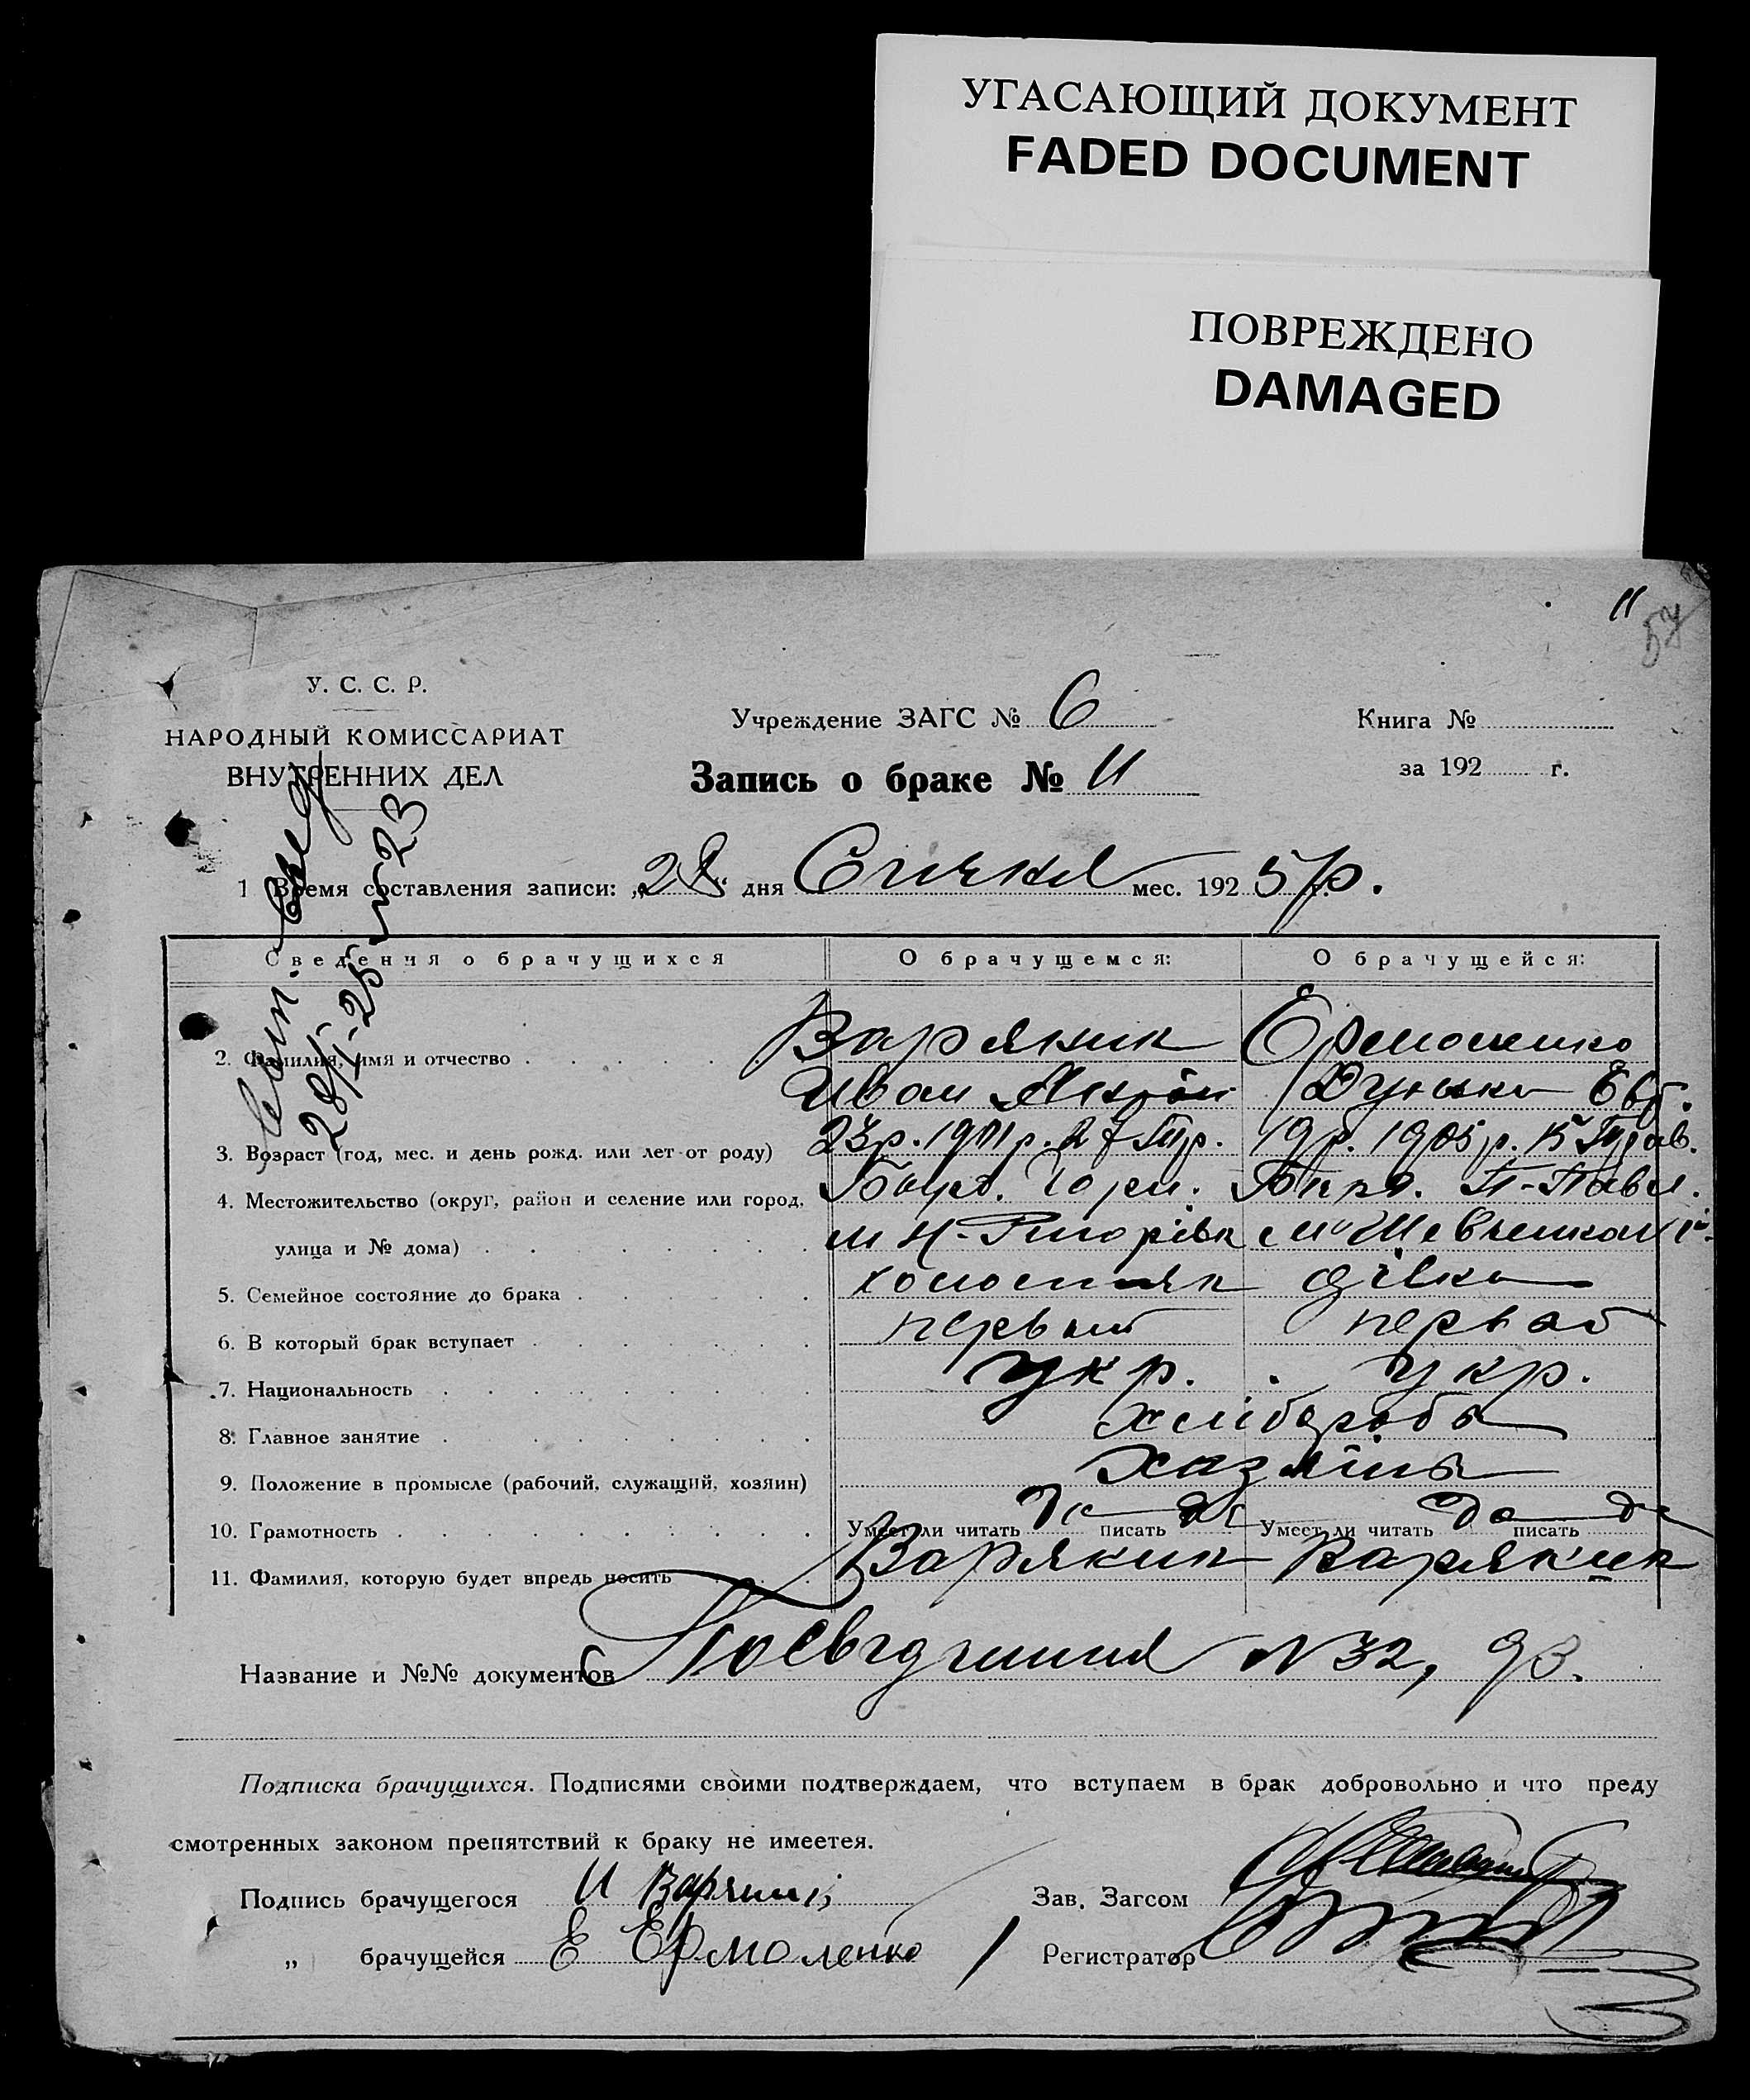 УГАСАЮЩИЙ ДОКУМЕНТ
FADED DOCUMENT
ПОВРЕЖДЕНО
DAMAGED
11
57
У. С. С. Р.
НАРОДНЫЙ КОМИССАРИАТ
ВНУТРЕННИХ ДЕЛ
Учреждение ЗАГС № 6
Книга №
Запись о браке № 11
за 192 г.
28/I-25 N 23
1 Время составления записи: „28“ дня Січня мес. 1925 р.
Сведения о брачущихся О брачущемся: О брачущейся:
2. Фамилия, имя и отчество Варякин Ермоленко
Иван Дунька Евг.
3. Возраст (год, мес. и день рожд. или лет от роду) 23 р. 1901 р. 27 19 р. 1905 р. 15
4. Местожительство (округ, район и селение или город,
улица и № дома) Н-Григорівк
5. Семейное состояние до брака холостяк дівка
6. В который брак вступает первий первой
7. Национальность укр. укр.
8. Главное занятие хліборобы
9. Положение в промысле (рабочий, служащий, хозяин) хазяіны
10. Грамотность Умеет ли читать да писать да Умеет ли читать да писать да
11. Фамилия, которую будет впредь носить Варякин Варякин
Название и №№ документов Посвідчення N 32, 93.
Подписка брачущихся. Подписями своими подтверждаем, что вступаем в брак добровольно и что преду
смотренных законом препятствий к браку не имеетея.
Подпись брачущегося И
Зав. Загсом
„ брачущейся Е Ермоленко
Регистратор